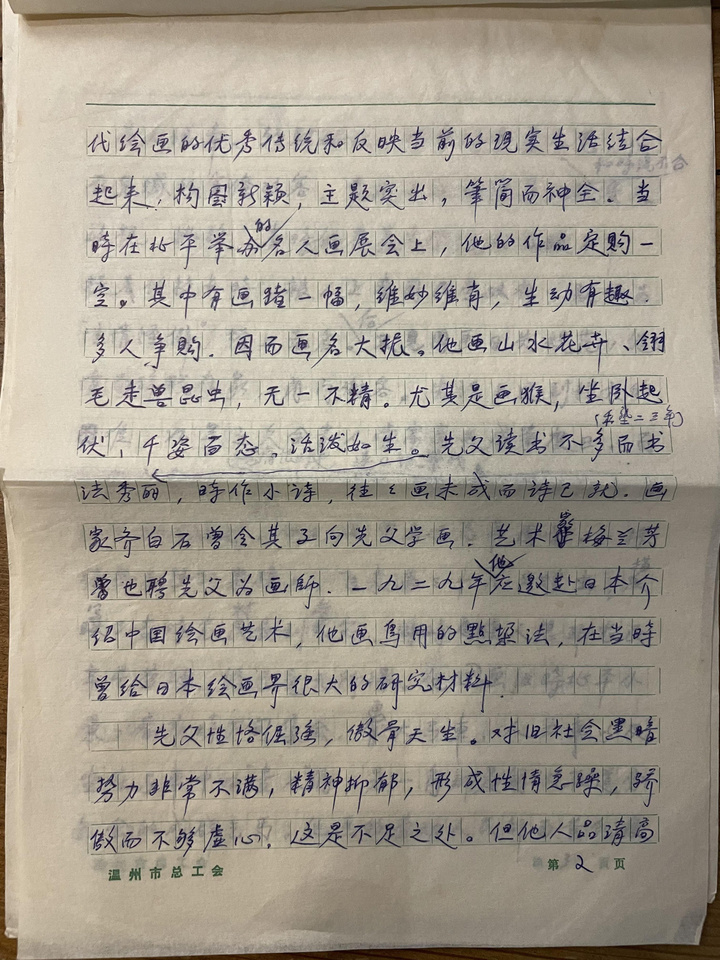 代绘画的优秀传统和反映当前的现实生活结合
起来，构图新颖，主题突出，筆简而神全。当
的
時在北平举办名人画展会上，他的作品定购一
空。其中有画猪一幅，维妙维肖，生动有趣.
多人争购.因而画名大振。他画山水花卉、翎
毛走兽昆虫，无一不精。尤其是画猴，坐卧起
(私塾二三年)
伏，千姿百态，活泼如生。先父读书不多而书
法秀丽，時作小詩，往々画未成而诗已就.画
家齐白石曾令其子向先父学画.艺术 梅兰芳
曾也聘先父为画師.一九二九年 他 应邀赴日本介
绍中国绘画艺术，他画鳥用的點染法，在当時
曾给日本绘画界很大的研究材料.
先父性格倔强，傲骨天生。对旧社会黑暗
势力非常不满，精神抑郁，形成性情急躁，骄
傲而不够虚心.这是不足之处。但他人品清高
温州市总工会
第2页